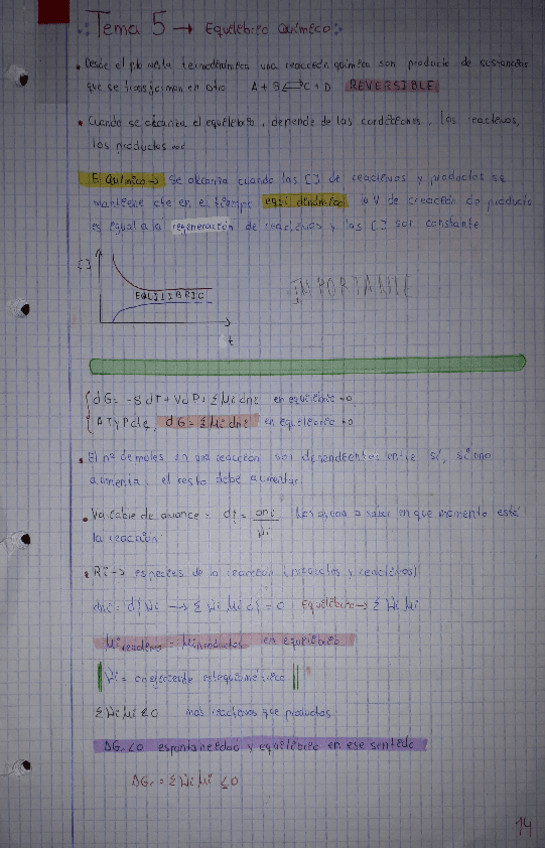 Tema 5 → Equilibrio Químico:
• Desde el pto vista termodinámico una reacción química son producto de sustancias
que se transforman en otro A + B ⇌ C + D REVERSIBLE
• Cuando se alcanza el equilibrio, depende de las condiciones, los reactivos,
los productos
E. Químico → Se alcanza cuando las [ ] de reactivos y productos se
mantiene cte en el tiempo equi dinámico la V de creación de producto
es igual a la regeneración de reactivos y las [ ] son constante
[ ]
EQUILIBRIO
IMPORTANTE
t
dG = -SdT + VdP + Σμidni en equilibrio = 0
A T y P cte, dG = Σμidni en equilibrio = 0
• El nº de moles en una reacción son dependientes entre sí, si uno
aumenta, el resto debe aumentar
• Variable de avance = dξ = dni/νi a saber en que momento está
la reacción
• Ri → especies de la reacción (productos y reactivos)
dni = dξνi → Σνiμi dξ = 0 Equilibrio → Σνiμi
μreactivos = μproductos en equilibrio
νi = coeficiente estequiométrico
Σνiμi ≤ 0 mas reactivos que productos
ΔG < 0 espontaneidad y equilibrio en ese sentido
ΔGr = Σνiμi ≤ 0
14